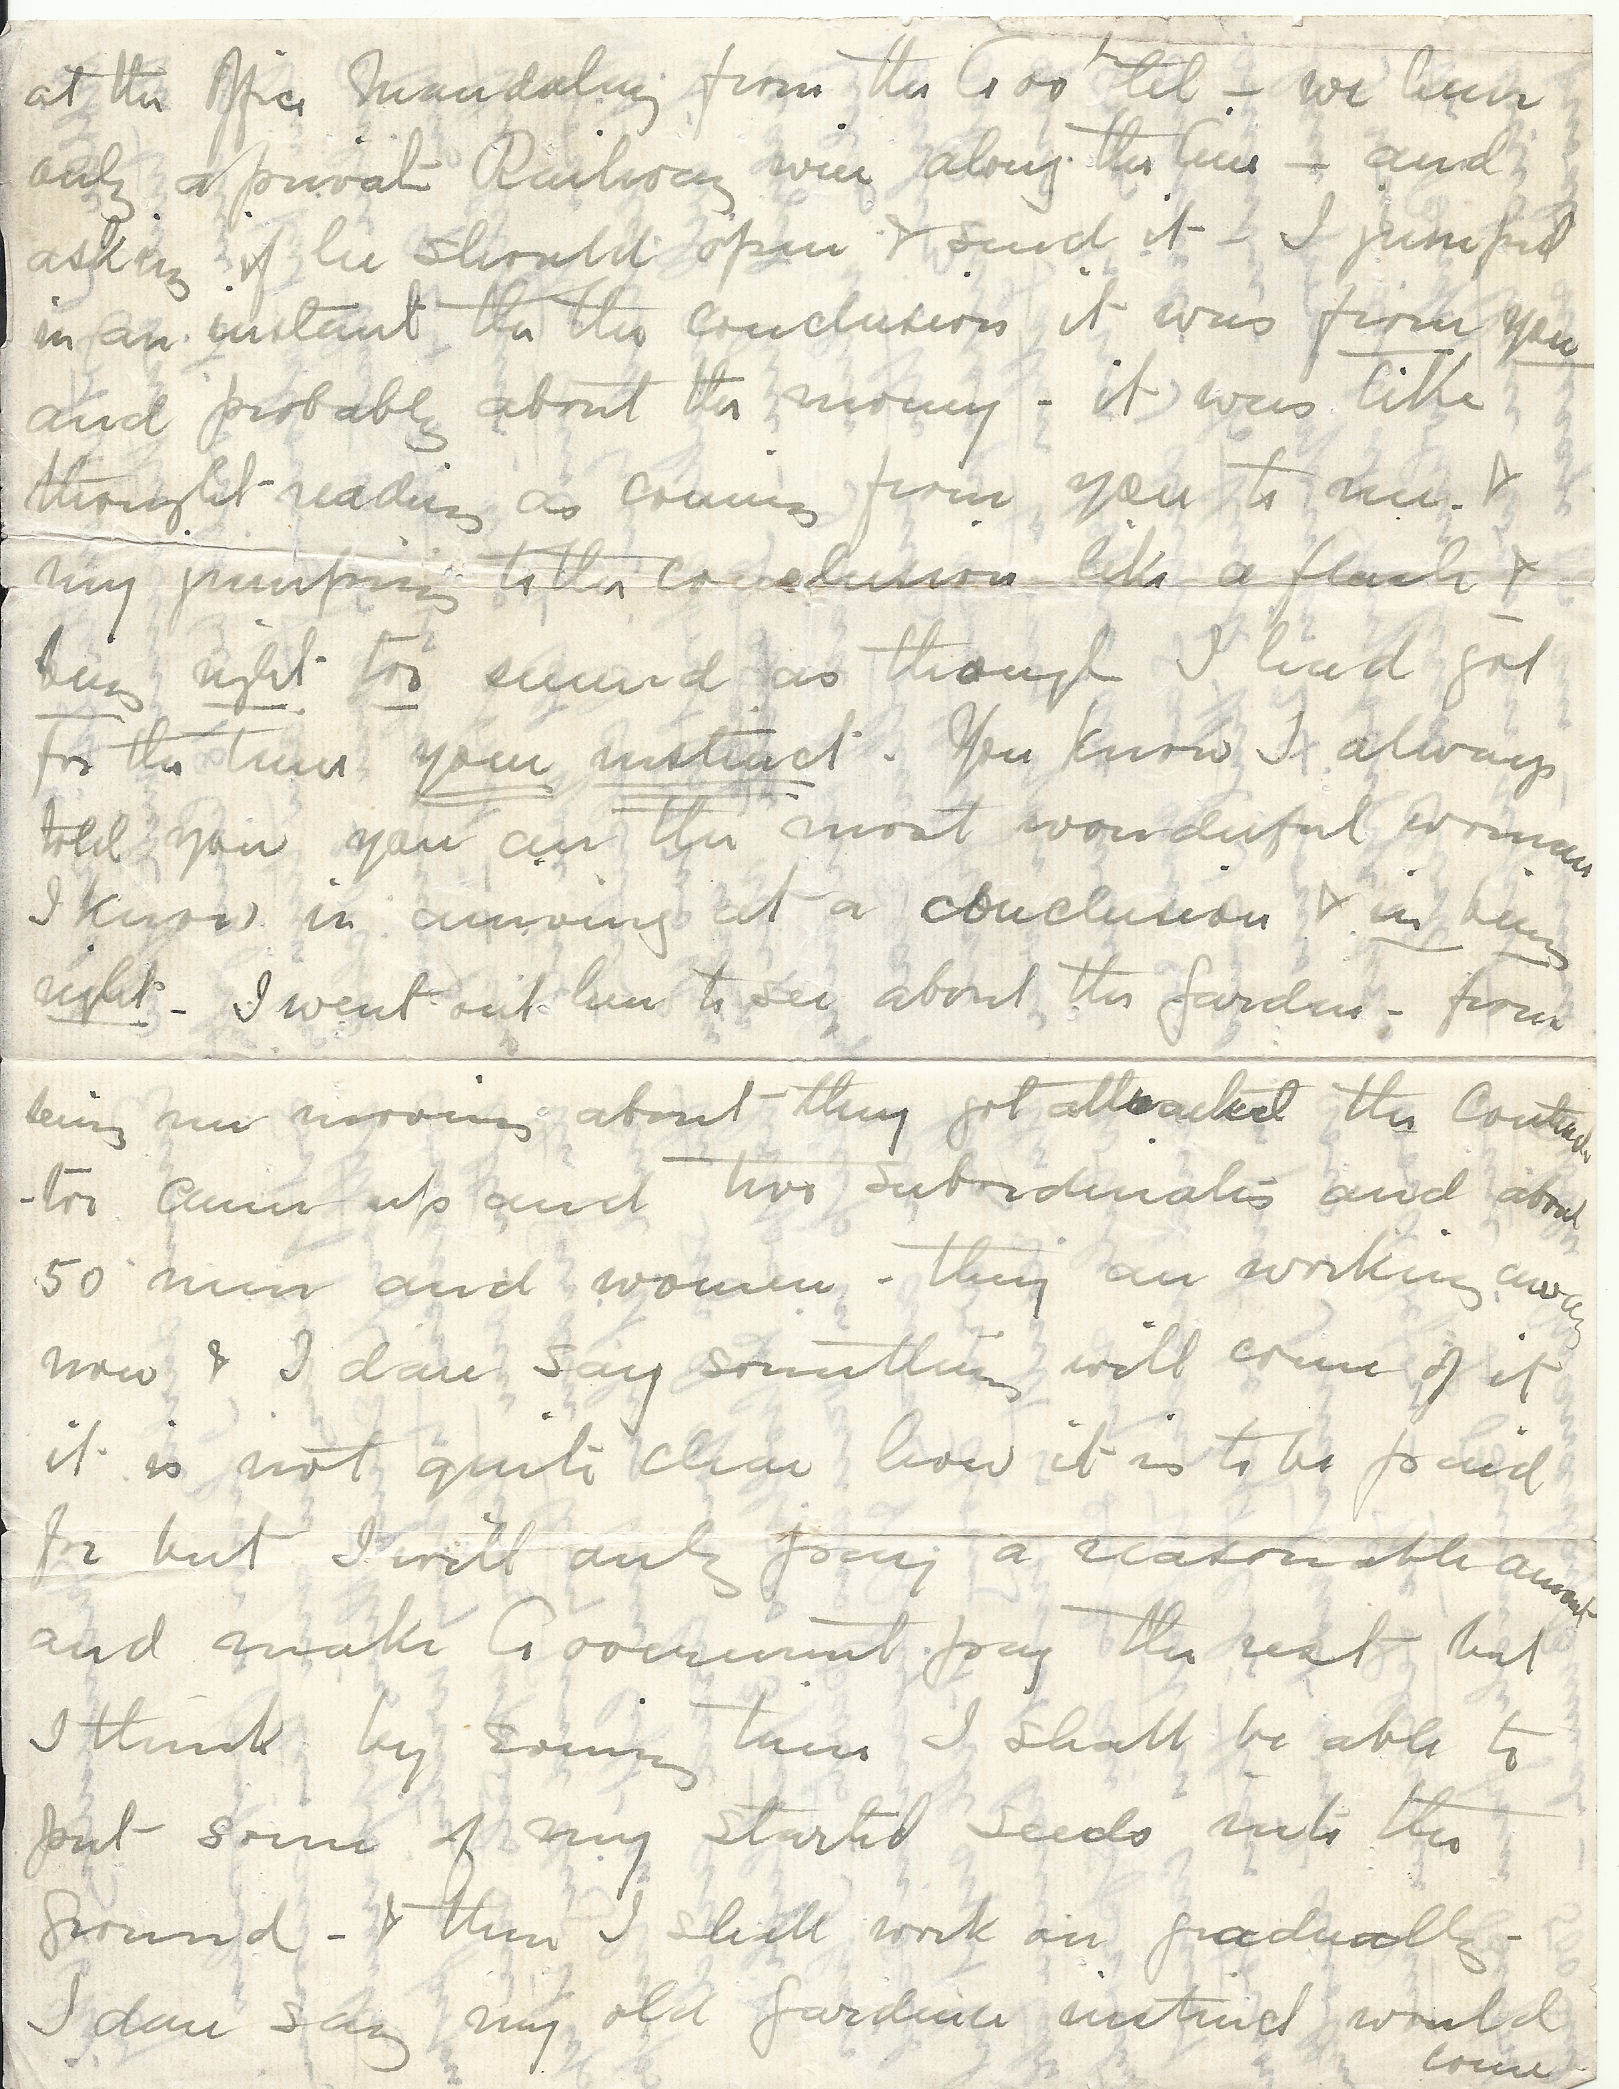 at the Office Mandalay from the Govt tel - we have
only a private Railway wire along the line - and
asking if he should open & send it - I jumped
in an instant the the conclusion it was from you
and probably about the money - it was like
thought reading as coming from you to me. &
my jumping to the conclusion like a flash &
being right too seemed as though I had got
for the time your instinct. You know I always
told you you are the most wonderful woman
I know in arriving at a conclusion & in being
right - I went out here to see about the garden - from
seeing me moving about they got attracted the Contrac
-tor came up and two subordinates and about
50 men and women - they are working away
now & I dare say something will come of it
it is not quite clear how it is to be paid
for but I will only pay a reasonable amount
and make Government pay the rest but
I think by time I shall be able to
put some of my started seeds into the
ground - & then I shall work on gradually -
I dare say my old gardener instinct would
come